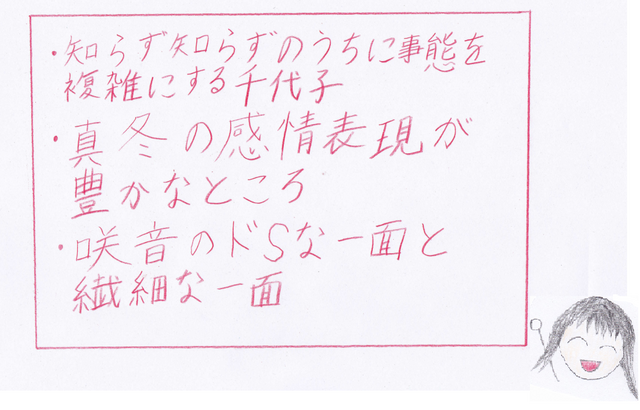 ・知らず知らずのうちに事態を
複雑にする千代子
・真冬の感情表現が
豊かなところ
・咲音のドSな一面と
繊細な一面